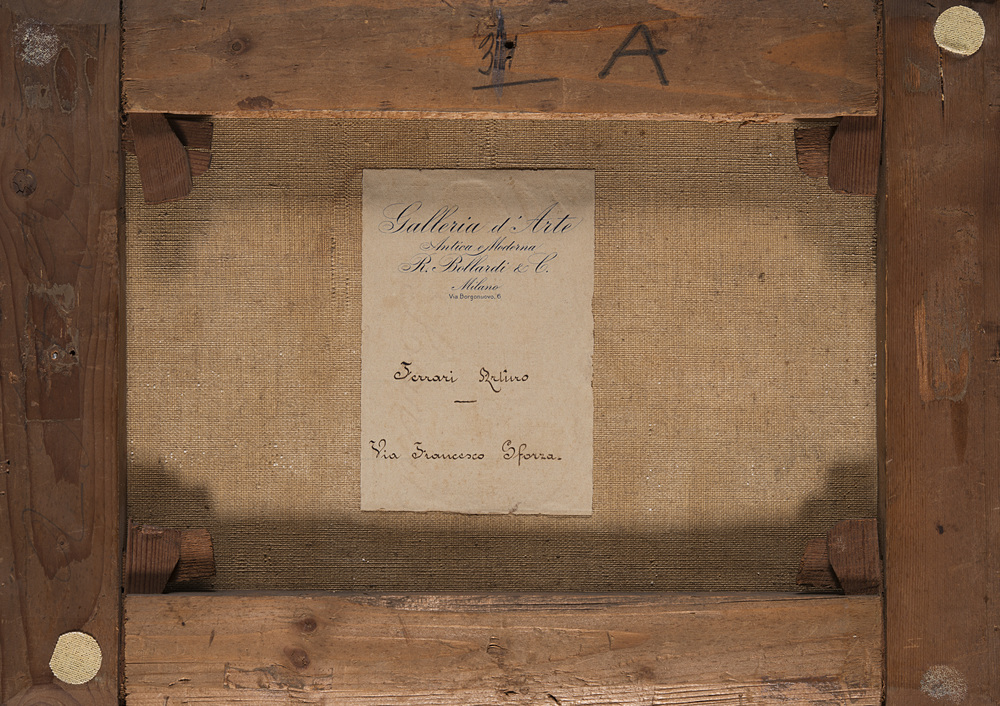 A
Galleria d'Arte
Antica e Moderna
R. Bollardi & C.
Milano
Via Borgonuovo, 6
Ferrari Arturo
Via Francesco Sforza.